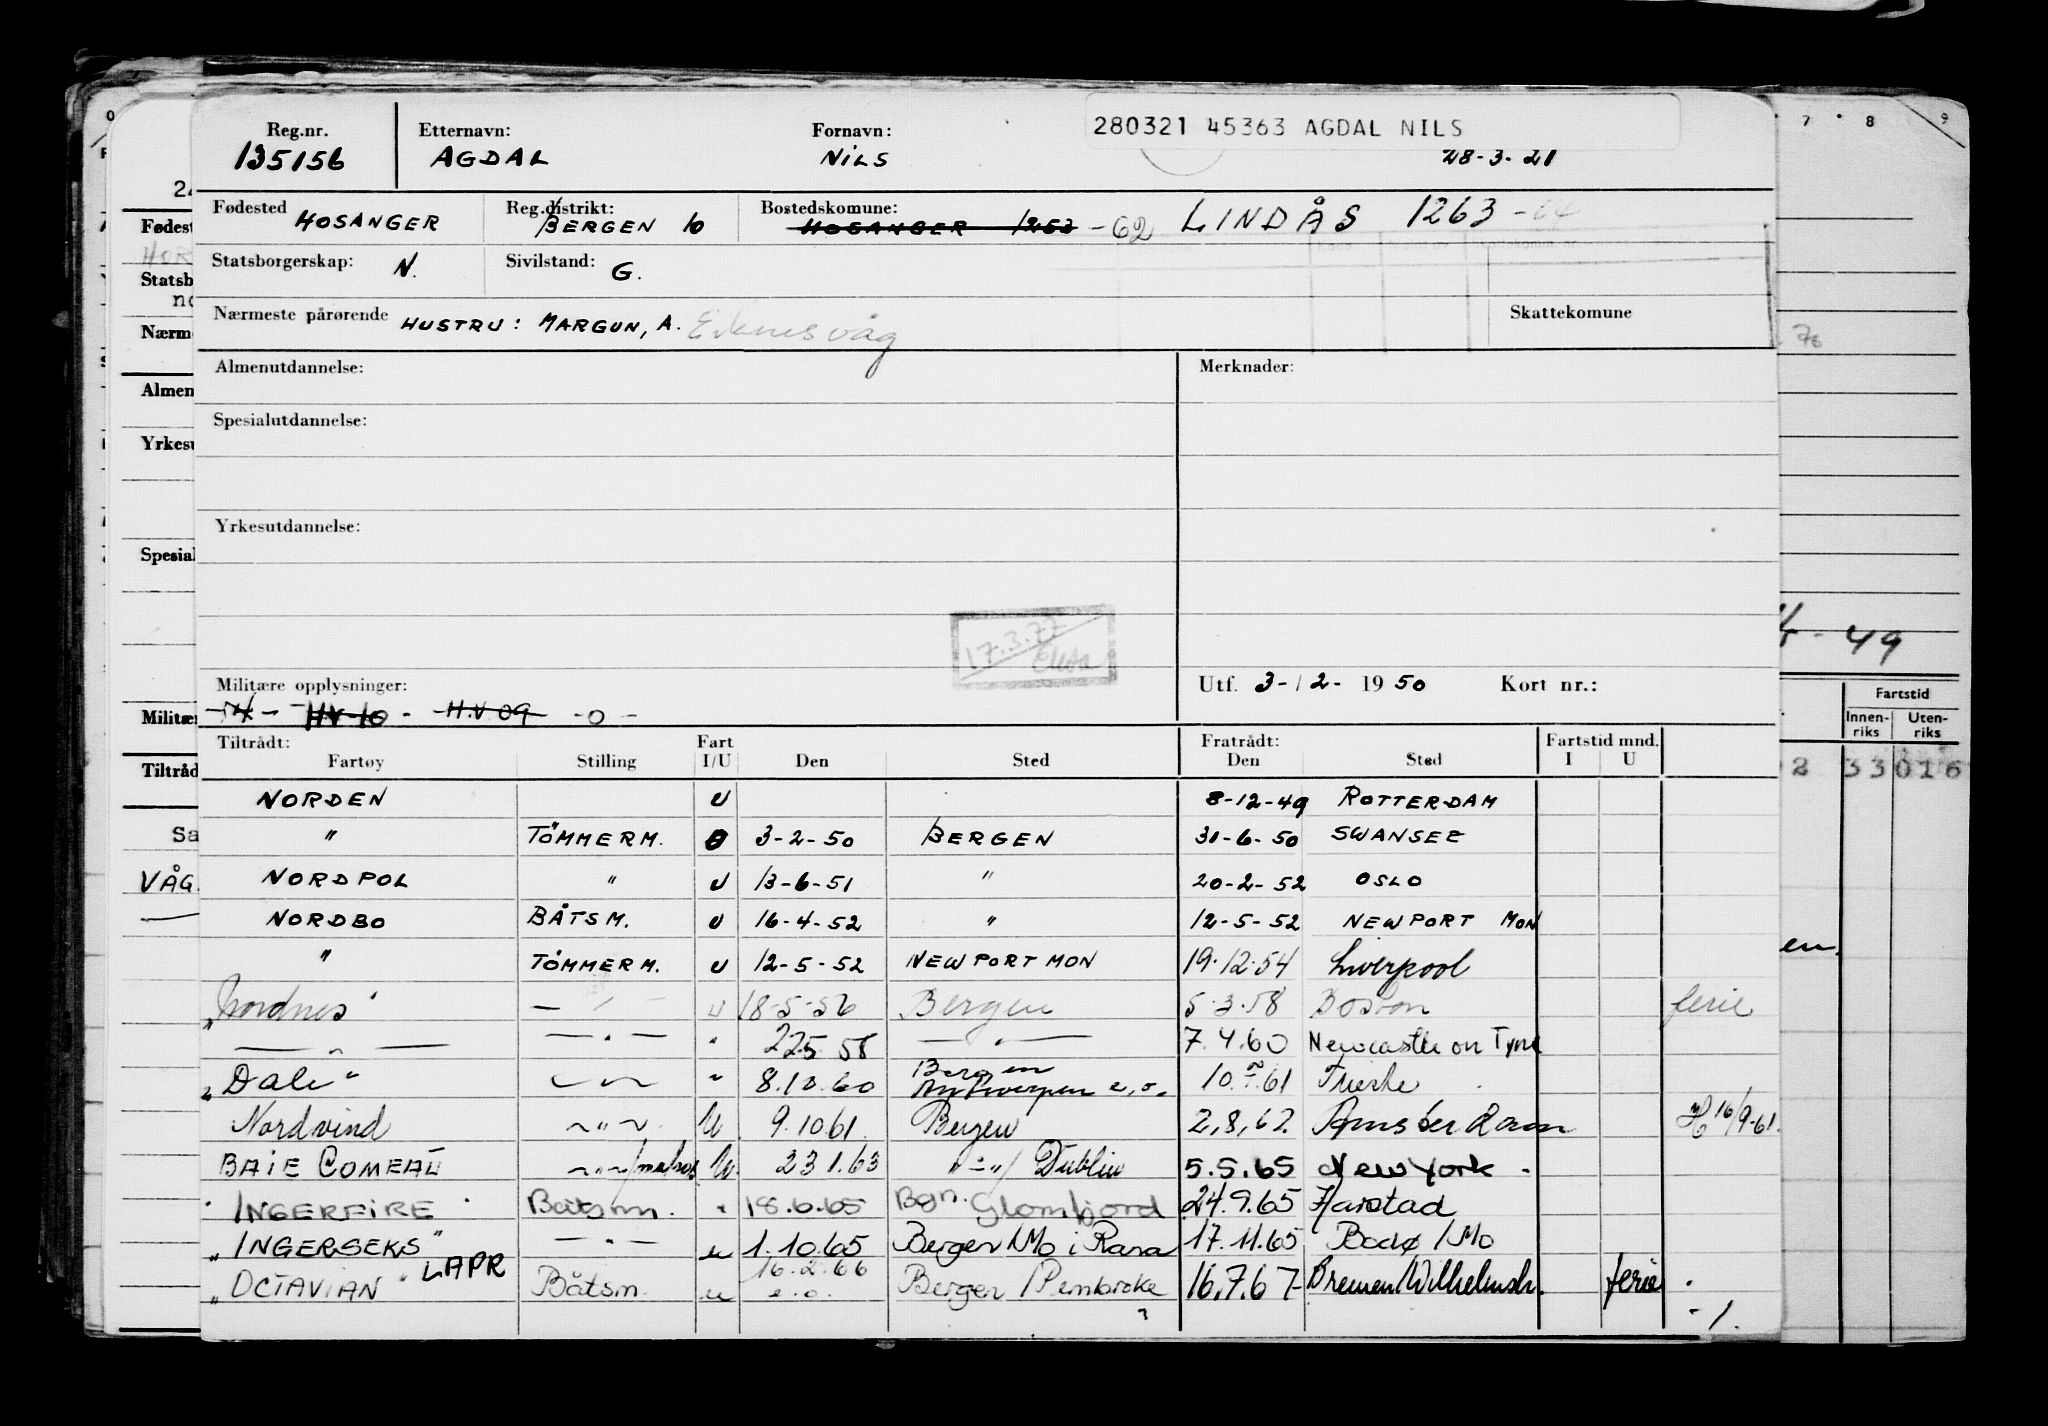 Reg.nr. Etternavn: Fornavn: 280321 45363 AGDAL NILS
135156 AGDAL NILS 28-3-21
Fødested HOSANGER Reg.distrikt: BERGEN 10 Bostedskomune: HOSANGER 1253 -62 LINDÅS 1263 -64
Statsborgerskap: N. Sivilstand: G.
Nærmeste pårørende HUSTRU: MARGUN, A. Eiknesvåg Skattekomune
Almenutdannelse: Merknader:
Spesialutdannelse:
Yrkesutdannelse:
17.3.77
Militære opplysninger: Utf. 3-/2- 1950 Kort nr.:
HV-10 - H.V 09 -0-
Tiltrådt: Fart Fratrådt: Fartstid mnd.
Fartøy Stilling I/U Den Sted Den Sted I U
NORDEN U 8-12-49 ROTTERDAM
" TÖMMERM. 3-2-50 BERGEN 31-6-50 SWANSEE
NORDPOL " U 13-6-51 " 20-2-52 OSLO
NORDBO BÅTSM. U 16-4-52 " 12-5-52 NEWPORT MON
" TÖMMERM. U 12-5-52 NEWPORT MON 19.12.54 Liverpool
"Nordnes" — " — U 18-5-56 Bergen 5.3.58 Boston ferie
— " — — " — " 22.5.58 — " — 7.4.60 Newcastle on Tyne
"Dale" — " — " 8.10.60 Bergen Antwerpen e.o. 10.7.61 Trieste
Nordvind ~"~. U 9.10.61 Bergen 2,8,62 Amsterdam 16/9-61.
BAIE COMEAU ~"~/matros U 23.1.63 "-"/ Dublin 5.5.65 New York -
"INGERFIRE" Båtsm. " 18.6.65 Bgn. Glomfjord 24.9.65 Harstad
"INGERSEKS" — " — u 1.10.65 Bergen/Mo i Rana 17.11.65 Bodø/Mo
"OCTAVIAN" LAPR Båtsm. u 16.2.66 e.o. Bergen/Pembroke 16.7.67- Bremen/Wilhelmsh. ferie
- 1.
Innenriks Utenriks
Fartstid
33016